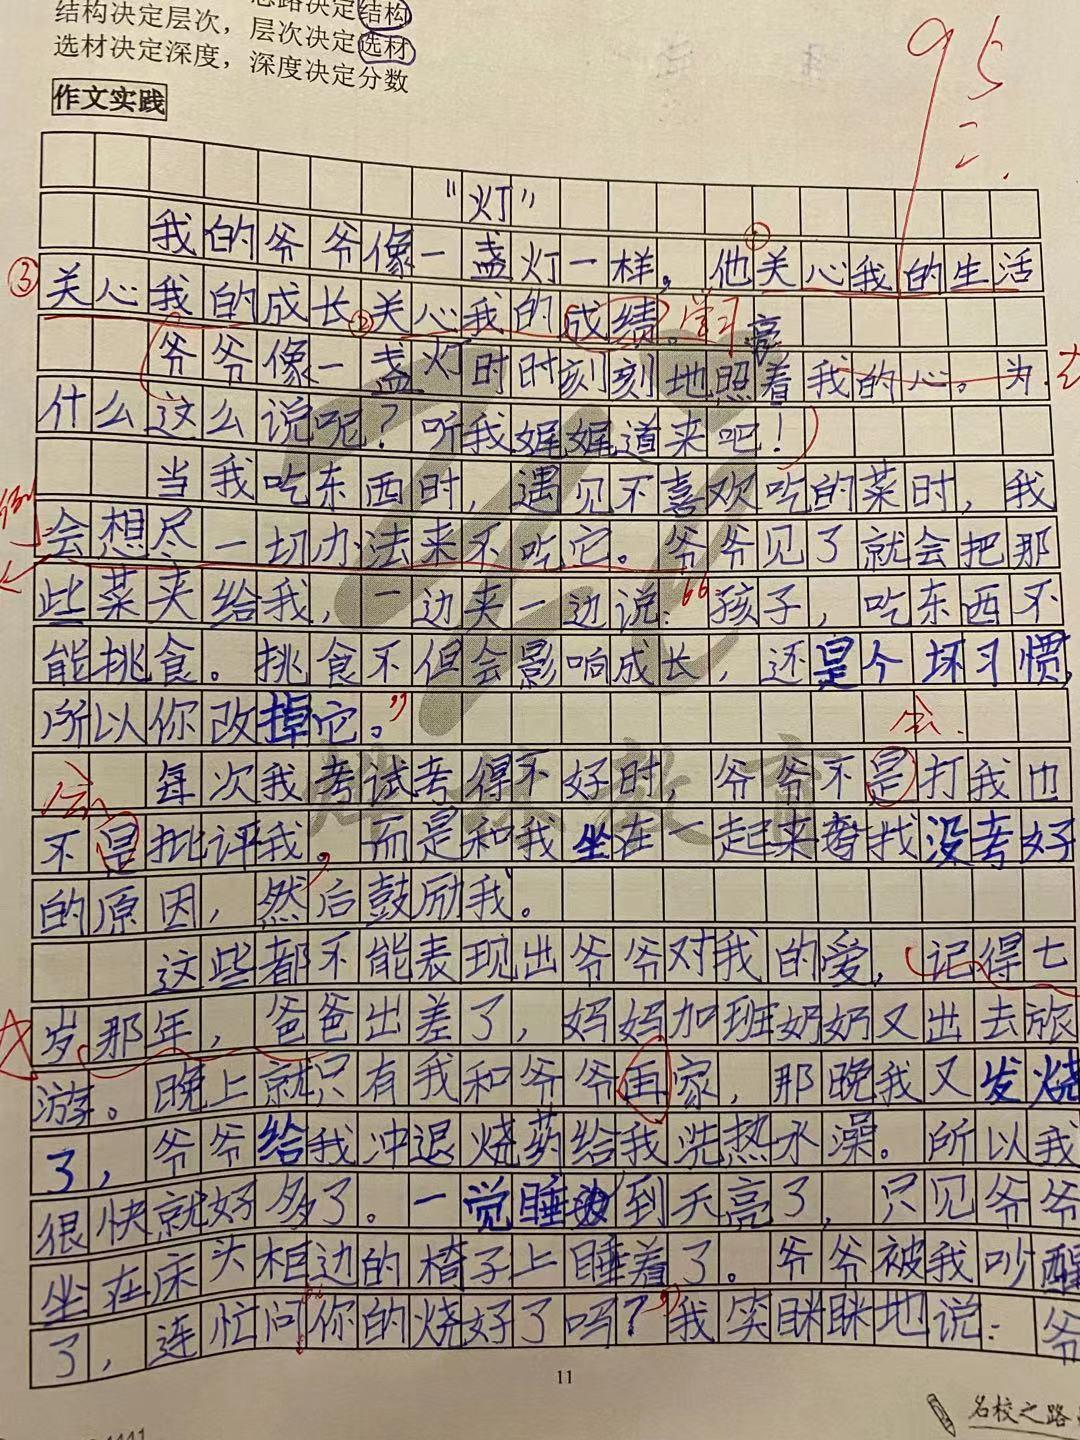 思路决定结构
结构决定层次，层次决定选材
选材决定深度，深度决定分数
作文实践
95
“灯”
我的爷爷像一盏灯一样。他①关心我的生活
③关心我的成长②关心我的成绩。学习
亮
爷爷像一盏灯时时刻刻地照着我的心。为
什么这么说呢？听我娓娓道来吧！
当我吃东西时，遇见不喜欢吃的菜时，我
例
会想尽一切办法来不吃它。爷爷见了就会把那
些菜夹给我，一边夹一边说：“孩子，吃东西不
能挑食。挑食不但会影响成长，还是个坏习惯，
所以你改掉它。”
会
每次我考试考得不好时，爷爷不是打我也
会
不是批评我，而是和我坐在一起来替找没考好
的原因，然后鼓励我。
这些都不能表现出爷爷对我的爱，记得七
岁那年，爸爸出差了，妈妈加班奶奶又出去旅
游。晚上就只有我和爷爷再家，那晚我又发烧
了，爷爷给我冲退烧药给我洗热水澡。所以我
很快就好多了。一觉睡到天亮了，只见爷爷
坐在床头相边的椅子上睡着了。爷爷被我吵醒
了，连忙问：“你的烧好了吗？”我笑眯眯地说：爷
11
名校之路